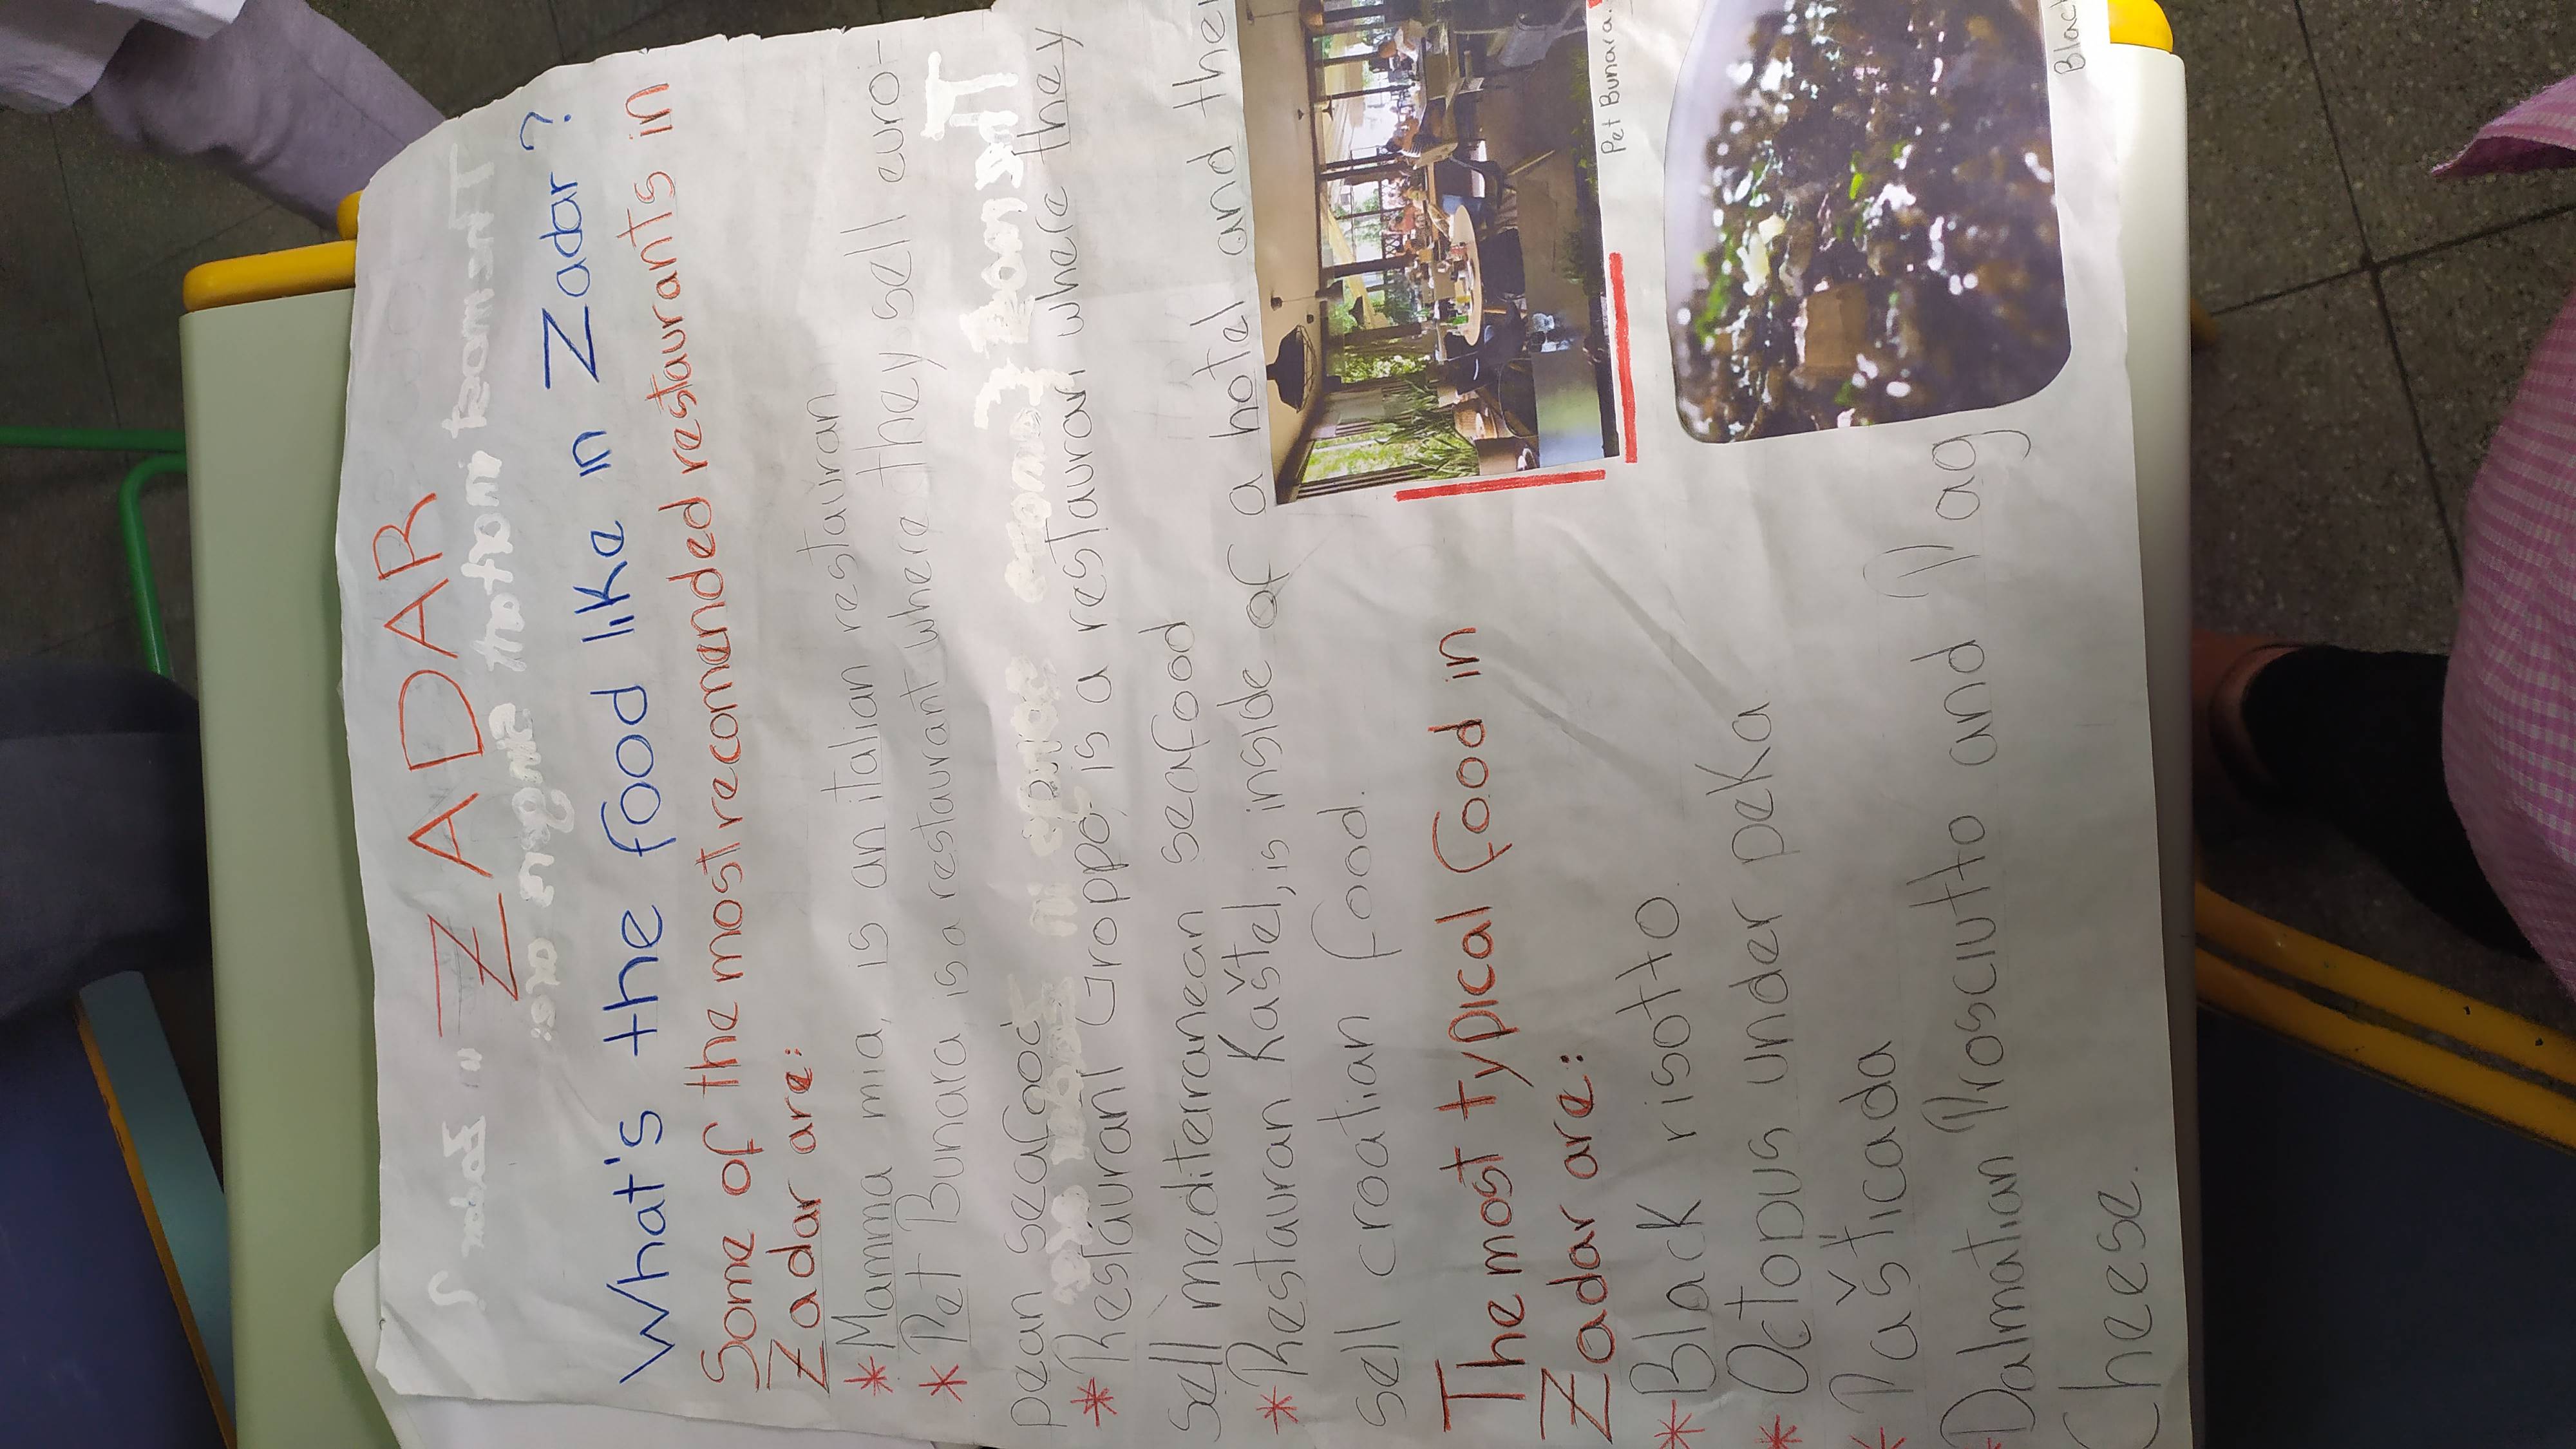 ZADAR
What's the food like in Zadar?
Some of the most recomended restaurants in
Zadar are:
*Mamma mia, is an italian restauran
* Pet Bunara, is a restaurant where they sell euro-
pean seafood
*Restaurant Groppo, is a restauran where they
sell mediterranean seafood
*Restauran Kaštel, is inside of a hotel and the
sell croatian food.
Pet Bunara.
The most typical food in
Zadar are:
*Black risotto
*Octopus under peka
*Pašticada
*Dalmatian Prosciutto and Pag
Cheese.
Blac